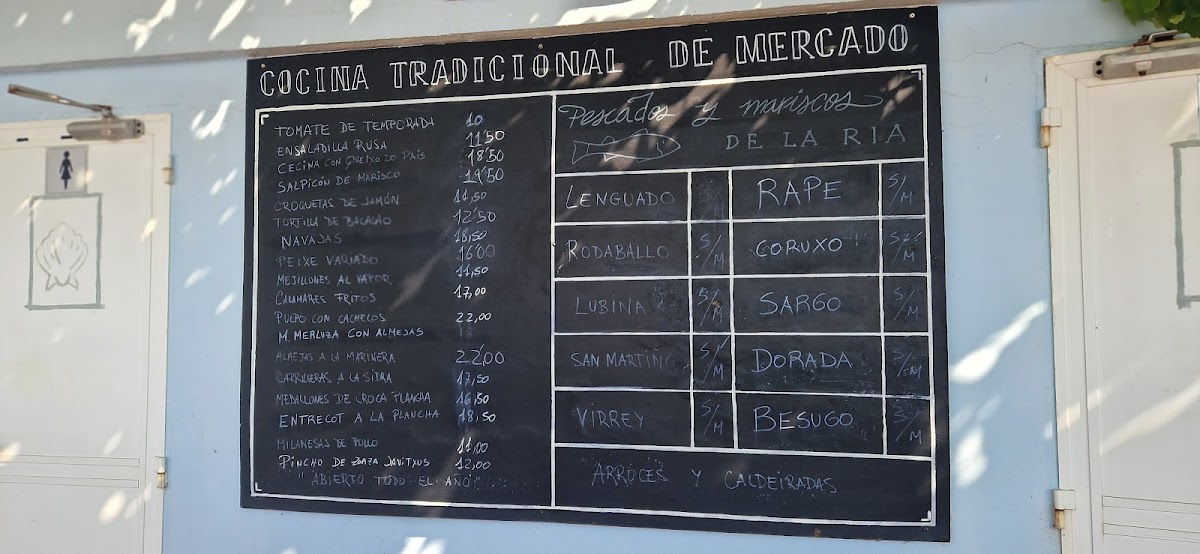 COCINA TRADICIONAL DE MERCADO
TOMATE DE TEMPORADA 10
ENSALADILLA RUSA 11'50
CECINA CON QUEIXO DO PAIS 18'50
SALPICÓN DE MARISCO 19'50
CROQUETAS DE JAMÓN 11,50
TORTILLA DE BACALAO 12'50
NAVAJAS 18,50
PEIXE VARIADO 16'00
MEJILLONES AL VAPOR 11,50
CALAMARES FRITOS 17,00
PULPO CON CACHELOS 22,00
M. MERLUZA CON ALMEJAS 18
ALMEJAS A LA MARINERA 22'00
CARRILLERAS A LA SIDRA 17,50
MEDALLONES DE CROCA PLANCHA 16,50
ENTRECOT A LA PLANCHA 18,50
MILANESAS DE POLLO 11,00
PINCHO DE 12,00
"ABIERTO TODO EL AÑO"
Pescados y mariscos
DE LA RIA
LENGUADO RAPE S/M
RODABALLO S/M CORUXO S/M
LUBINA S/M SARGO S/M
SAN MARTIÑO S/M DORADA S/M
VIRREY S/M BESUGO S/M
ARROCES Y CALDEIRADAS